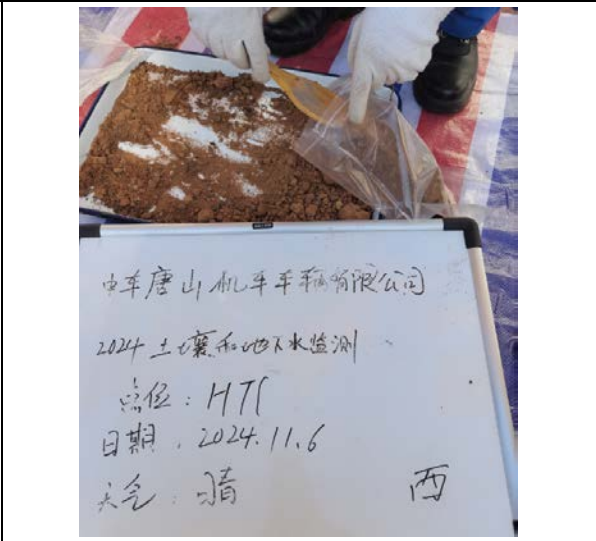 中车唐山机车车辆有限公司
2024土壤和地下水监测
点位：HT1
日期：2024.11.6
天气：晴 西